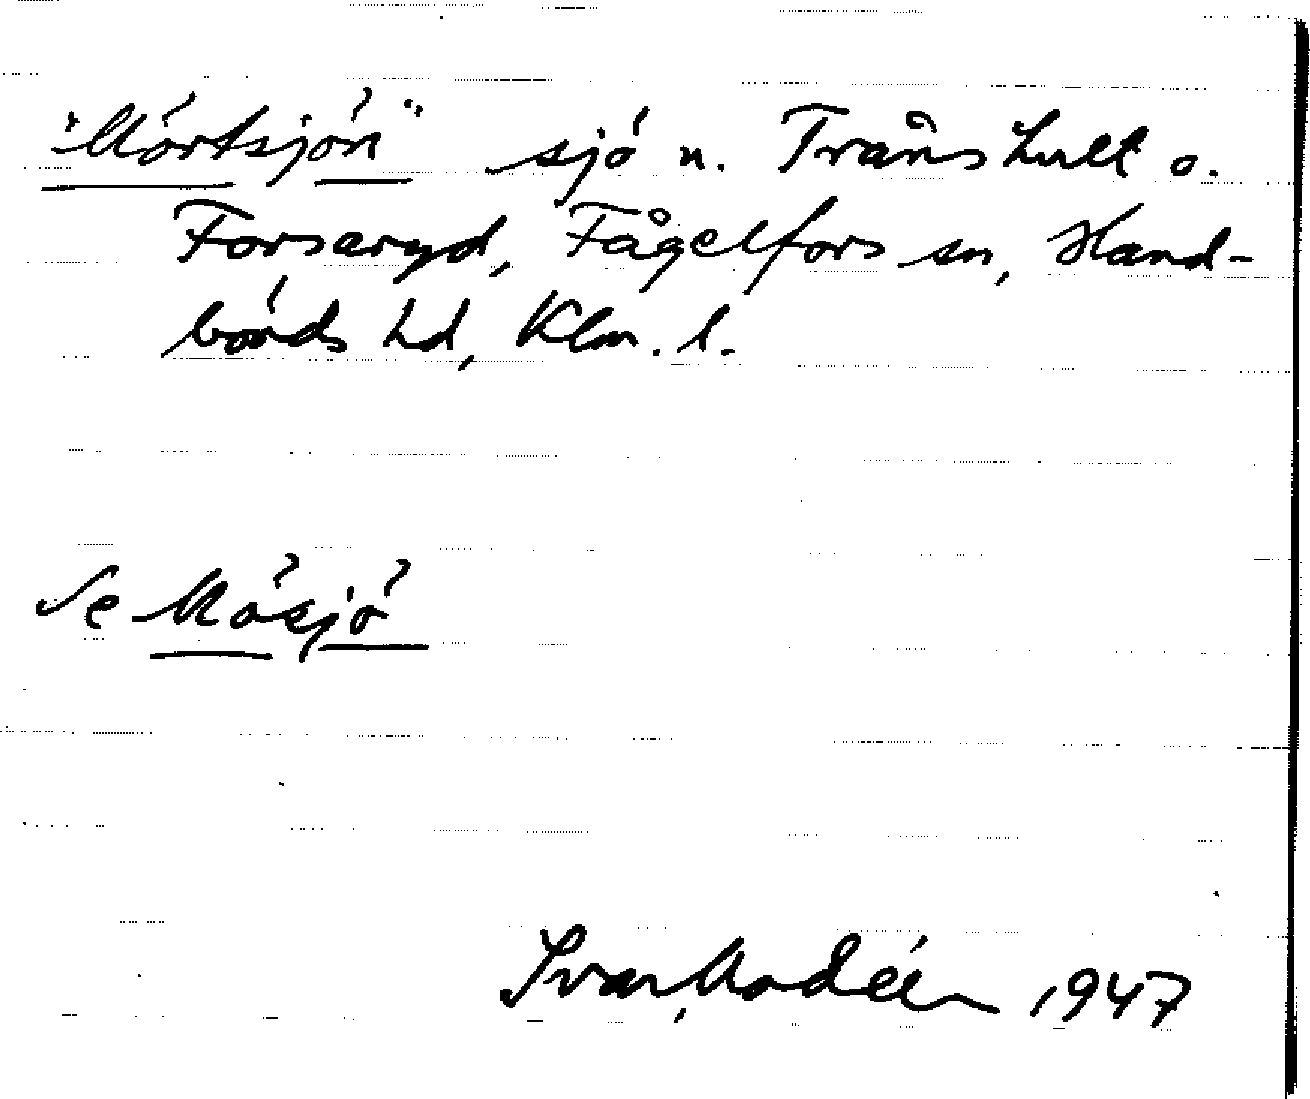 "Mörtsjön" sjö n. Trånshult o.
Forsaryd, Fågelfors sn, Hand-
börds hd, Klm. l.
Se Mösjö
Ivar Modéer 1947